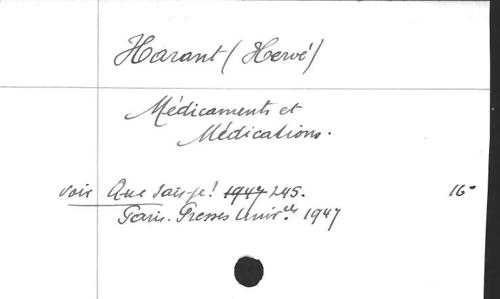 Harant (Hervé)
Médicaments et
Médications.
voir Que sais-je! 1947 245. 16°
Paris. Presses Univ.les 1947